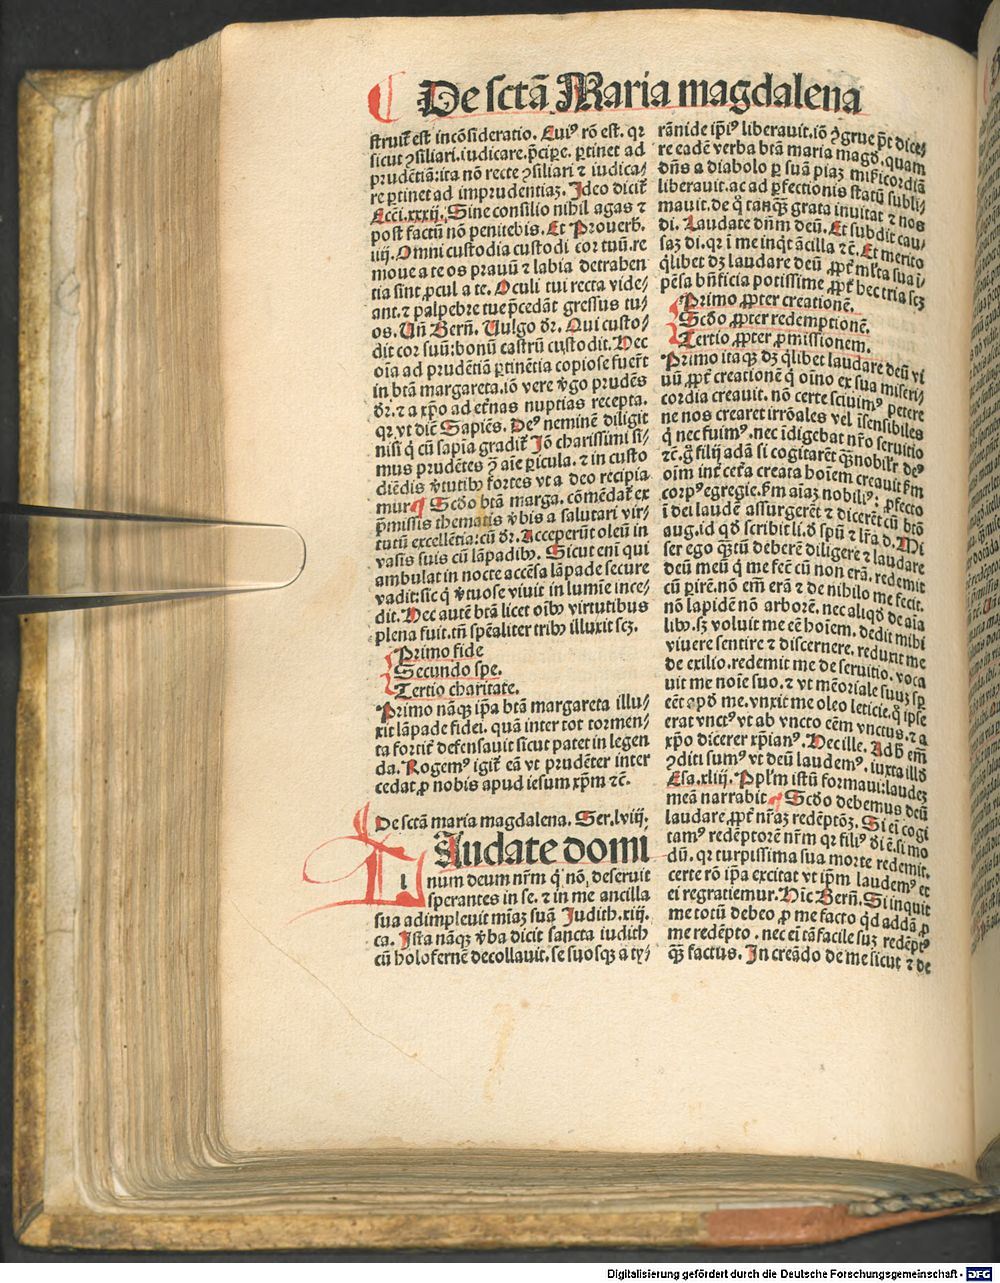 De sctā Maria magdalena
struit̄ est incōsideratio. Eui⁹ rō est. qꝛ
sicut ꝯsiliari. iudicare. p̄cipe. ꝑtinet ad
prudētiā: ita nō recte ꝯsiliari ⁊ iudica⸗
re ꝑtinet ad imprudentiaꝫ. Ideo dicit̄
Ecci. xxxij. Sine consilio nihil agas ⁊
post factū nō penitebis. Et Prouerb.
iiij. Omni custodia custodi cor tuū. re
moue a te os prauū ⁊ labia detraben
tia sint ꝓcul a te. Oculi tui recta vide⸗
ant. ⁊ palpebre tue p̄cedāt gressus tu⸗
os. Uñ Berñ. Uulgo dr̄. Qui custo⸗
dit cor suū: bonū castrū custodit. Hec
oīa ad prudētiā ꝑtinētia copiose fuer̄t
in btā margareta. iō vere v̄go prudēs
dr̄. ⁊ a xp̄o ad et̄nas nuptias recepta.
qꝛ vt dic̄ Sapiēs. De⁹ neminē diligit
nisi q̇ cū sapīa gradit̄ Iō charissimi si⸗
mus prudētes ꝓ aīe ꝑicula. ⁊ in custo
diēdis v̄tutibꝰ fortes vt a deo recipia
mur Scd̄o btā marga. cōmēdat̄ ex
p̄missis thematis v̄bis a salutari vir⸗
tutū excellētia: cū dr̄. Acceperūt oleū in
vasis suis cū lāpadibꝰ. Sicut eni qui
ambulat in nocte accēsa lāpade secure
vadit: sic q̇ v̄tuose viuit in lumīe ince⸗
dit. Hec autē btā licet oībꝰ virtutibus
plena fuit. tñ spēaliter tribꝰ illuxit scꝫ.
Primo fide
Secundo spe.
Tertio charitate.
Primo nāqꝫ ip̄a btā margareta illu⸗
xit lāpade fidei. quā inter tot tormen⸗
ta fortit̄ defensauit sicut patet in legen
da. Rogem⁹ igit̄ eā vt prudēter inter
cedat ꝓ nobis apud iesum xp̄m ⁊c̄.
De sctā maria magdalena. Ser. lviij.
Laudate domi
num deum nr̄m q̇ nō deseruit
sperantes in se. ⁊ in me ancilla
sua adimpleuit mīaꝫ suā Judith. xiij.
ca. Ista nāqꝫ v̄ba dicit sancta iudith
cū holofernē decollauit. se suosqꝫ a ty⸗
rānide ip̄i⁹ liberauit. iō ꝯgrue p̄t dice⸗
re eadē verba btā maria magd̄. quam
dñs a diabolo ꝑ suā piaꝫ mīcordiā
liberauit. ac ad ꝑfectionis statū subli⸗
mauit. de q̇ tanqꝫ grata inuitat ⁊ nos
di. Laudate dñm deū. Et subdit cau⸗
saꝫ di. qꝛ ī me inq̇t ācilla ⁊c̄. Et merito
q̇libet dꝫ laudare deū ꝓpt̄ ml̄ta sua ī⸗
pēsa bñficia potissime ꝓpt̄ hec tria scꝫ
Primo ꝓpter creationē.
Scd̄o ꝓpter redemptionē.
Tertio ꝓpter ꝓmissionem.
Primo itaqꝫ dꝫ q̇libet laudare deū vi
uū ꝓpt̄ creationē q̇ oīno ex sua miseri⸗
cordia creauit. nō certe sciuim⁹ petere
ne nos crearet irrōales vel īsensibiles
q̇ nec fuim⁹. nec īdigebat nr̄o seruitio
⁊c̄. g̊ filij adā si cogitarēt qꝫ nobilit̄ de⁹
oīm int̄ cet̄a creata hoīem creauit s̄m
corp⁹ egregie. s̄m aīaꝫ nobili⁹: ꝓfecto
ī dei laudē assurgerēt ⁊ dicerēt cū btō
aug. id qd̄ scribit li. d̄ spū ⁊ lr̄a d. Mi
ser ego qꝫtū deberē diligere ⁊ laudare
deū meū q̇ me fec̄ cū non erā. redemit
cū ꝑirē. nō em̄ erā ⁊ de nihilo me fecit.
nō lapidē nō arborē. nec aliqd̄ de aīa
libꝰ. sꝫ voluit me ec̄ hoīem. dedit mihi
viuere sentire ⁊ discernere. reduxit me
de exilio. redemit me de seruitio. voca
uit me noīe suo. ⁊ vt mēoriale suuꝫ sꝑ
eēt apd̄ me. vnxit me oleo leticie. q̊ ipse
erat vnct⁹ vt ab vncto eēm vnctus. ⁊ a
xp̄o dicerer xp̄ian⁹. Hec ille. Ad h̄ em̄
ꝯditi sum⁹ vt deū laudem⁹. iuxta illd̄
Esa. xliij. Ppl̄m istū formaui: laudeꝫ
meā narrabit Scd̄o debemus deū
laudare. ꝓpt̄ nr̄aꝫ redēptōꝫ. Si ei cogi
tam⁹ redēptorē nr̄m qꝛ fili⁹ di ē. si mo
dū. qꝛ turpissima sua morte redemit.
certe rō ip̄a excitat vt ip̄m laudem⁹ et
ei regratiemur. Hīc Berñ. Si inquit
me totū debeo ꝓ me facto qd̄ addā ꝓ
me redēpto. nec ei tā facile suꝫ redēpt⁹
qꝫ factus. In creādo de me sicut ⁊ de
Digitalisierung gefördert durch die Deutsche Forschungsgemeinschaft - DFG